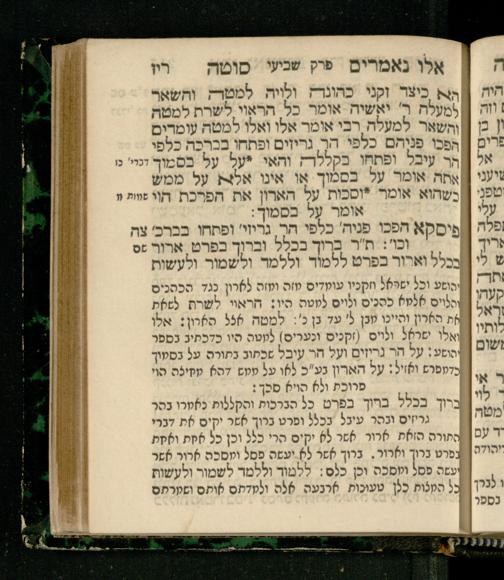 אלו נאמרים פרק שביעי סוטה ריז
הא כיצד זקני כהונה ולויה למטה והשאר
למעלה ר' יאשיה אומר כל הראוי לשרת למטה
והשאר למעלה רבי אומר אלו ואלו למטה עומדים
הפכו פניהם כלפי הר גריזים ופתחו בברכה כלפי
הר עיבל ופתחו בקללה והאי *על על בסמוך
אתה אומר על בסמוך או אינו אלא על ממש
כשהוא אומר *וסכות על הארון את הפרכת הוי
אומר על בסמוך:
דברי' כו
שמות מ
פיסקא הפכו פניה' כלפי הר גריזי' ופתחו בברכ'
וכו': ת"ר ברוך בכלל וברוך בפרט ארור
בכלל וארור בפרט ללמוד וללמד ולשמור ולעשות
צה
שם
יהושע וכל ישראל וזקניו עומדים מזה ומזה לארון נגד הכהנים
והלוים אלמא כהנים ולוים למטה היו: הראוי לשרת לשאת
את הארון והיינו מבן ל' עד בן נ': למטה אצל הארון: אלו
ואלו ישראל ולוים (זקנים ונערים) למטה היו כדכתיב בספר
יהושע: על הר גריזים ועל הר עיבל שכתוב בתורה על בסמוך
כדמפרש ואזיל: על הארון בע"כ לאו על ממש דהא מחילה הוי
פרוכת ולא הויא סכך:
ברוך בכלל ברוך בפרט כל הברכות והקללות נאמרו בהר
גריזים ובהר עיבל בכלל ופרט ברוך אשר יקים את דברי
התורה הזאת ארור אשר לא יקים הרי כלל וכן כל אחת ואחת
בפרט ברוך וארור. ברוך אשר לא יעשה פסל ומסכה ארור אשר
יעשה פסל ומסכה וכן כלם: ללמוד וללמד לשמור ולעשות
כל המצות כלן טעונות ארבעה אלה ולמדתם אותם ושמרתם